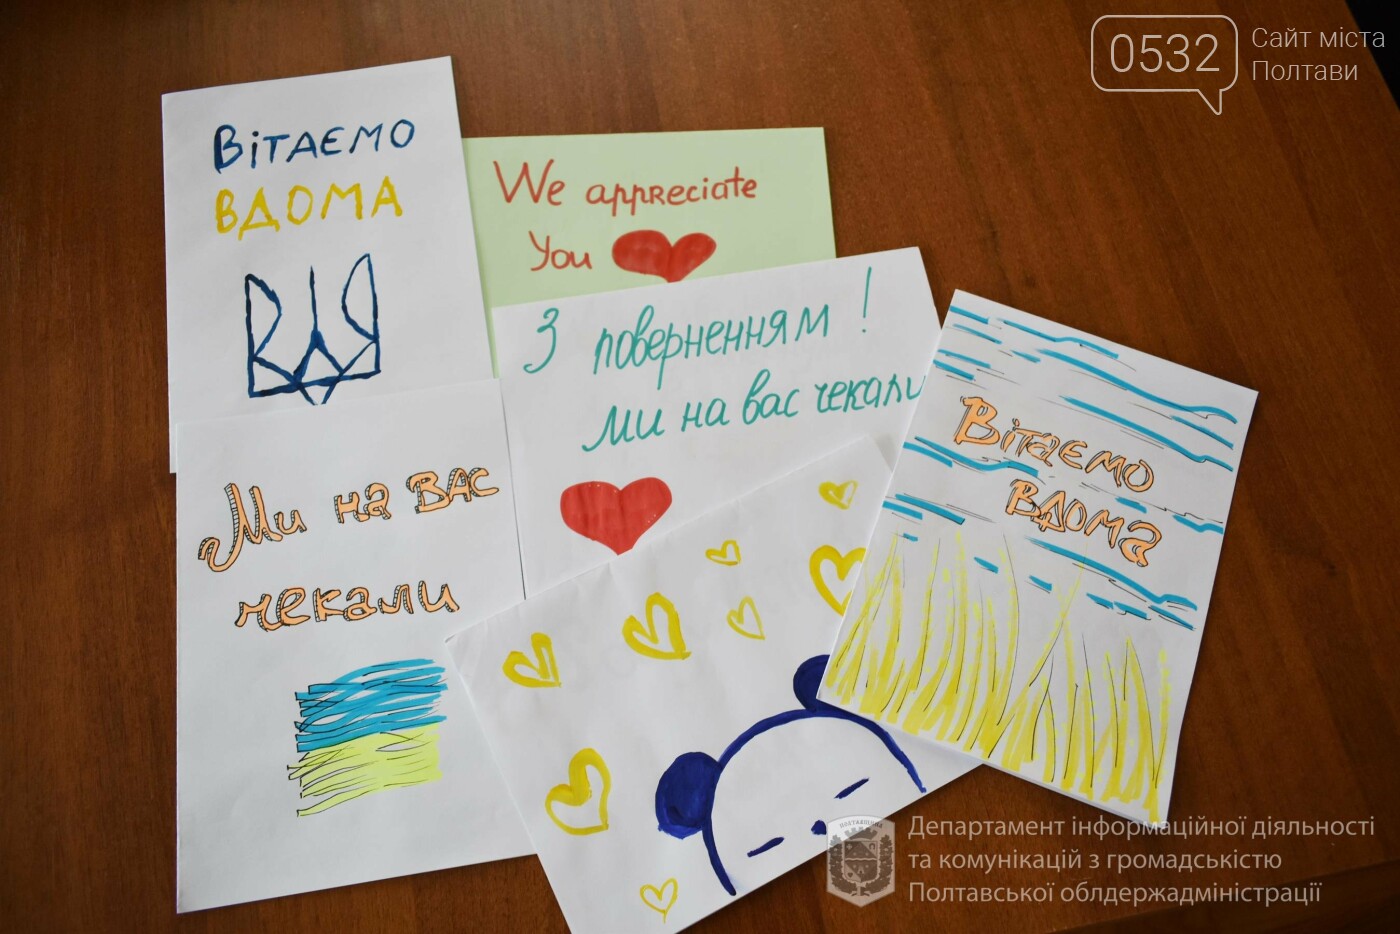 0532
Сайт міста
Полтави
Вітаємо
вдома
We appreciate
You
З поверненням!
ми на вас чекали
Вітаємо
вдома
Ми на вас
чекали
Департамент інформаційної діяльності
та комунікацій з громадськістю
Полтавської облдержадміністрації